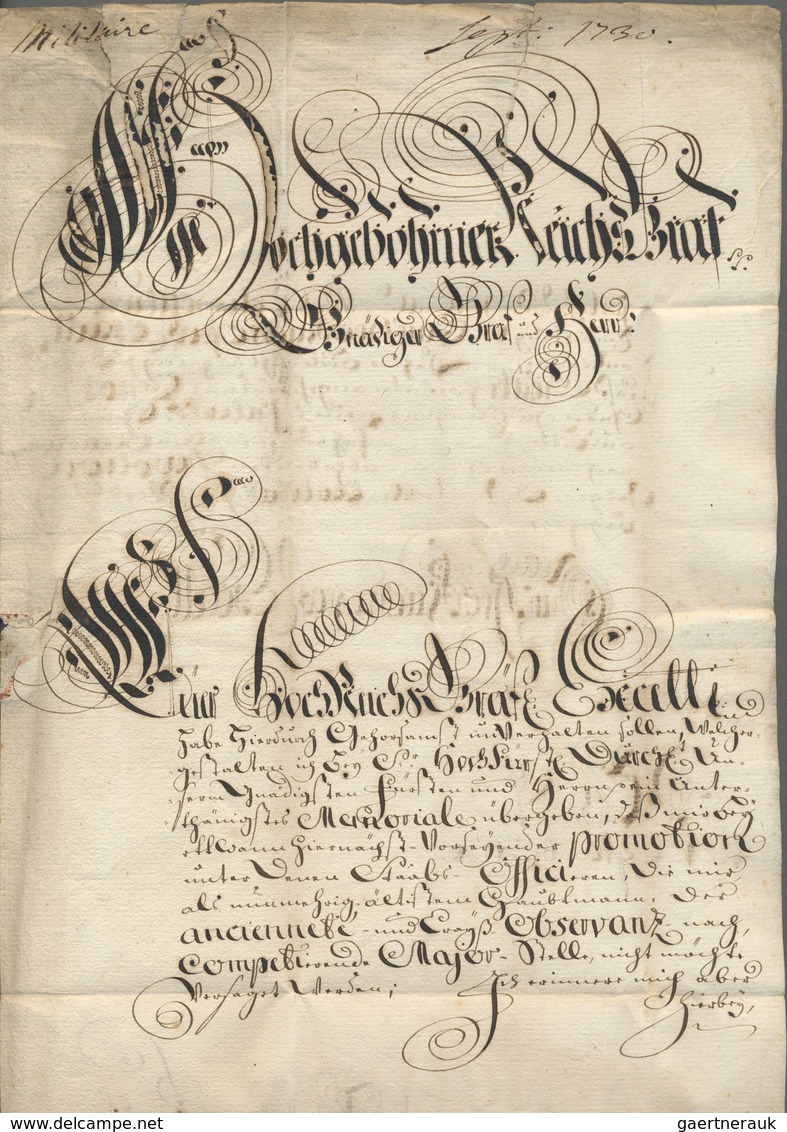 Militaire
Sept: 1730.
Hochgebohrner Reichs Graf
Gnädiger Graf und Herr:
Euer Hoch Reichs Gräfl Excell
habe hierdurch Gehorsamst unverhalten sollen, Welcher-
gestalten ich bey Sr: HochFürstl Durchl Un-
serm Gnädigsten Fürsten und Herrn, ein Unter-
thänigstes Memoriale übergeben, daß mir bey
ettwann hiernächst-Vorseyender promotion
unter denen Staabs-Officieren, die mir
als nunmehrig-ältistem Haubtmann, der
anciennete-und Crayß Observanz nach,
Competierende Major-Stelle, nicht möchte
Versaget Werden;
Ich erinnere mich aber
hierbey,
www.delcampe.net
gaertnerauk